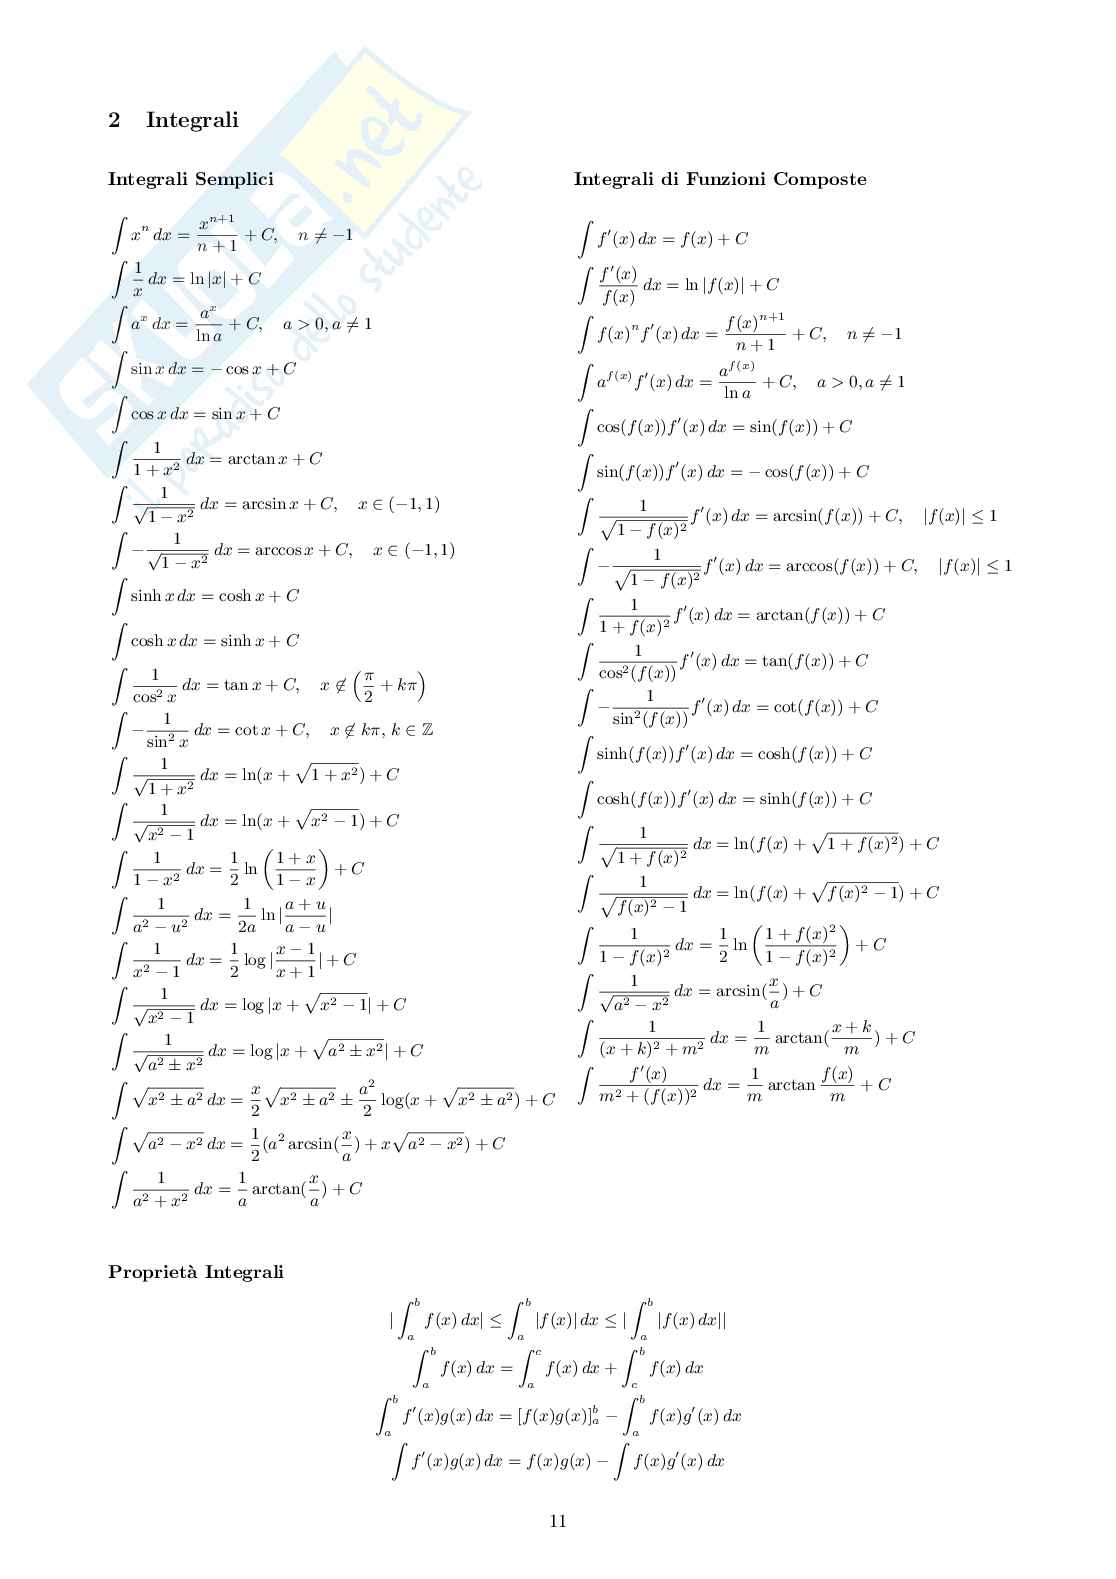 2 Integrali
Integrali Semplici
∫ xⁿ dx = xⁿ⁺¹/(n + 1) + C, n ≠ −1
∫ 1/x dx = ln |x| + C
∫ aˣ dx = aˣ/ln a + C, a > 0, a ≠ 1
∫ sin x dx = − cos x + C
∫ cos x dx = sin x + C
∫ 1/(1 + x²) dx = arctan x + C
∫ 1/√(1 − x²) dx = arcsin x + C, x ∈ (−1, 1)
∫ −1/√(1 − x²) dx = arccos x + C, x ∈ (−1, 1)
∫ sinh x dx = cosh x + C
∫ cosh x dx = sinh x + C
∫ 1/cos² x dx = tan x + C, x ∉ (π/2 + kπ)
∫ −1/sin² x dx = cot x + C, x ∉ kπ, k ∈ ℤ
∫ 1/√(1 + x²) dx = ln(x + √(1 + x²)) + C
∫ 1/√(x² − 1) dx = ln(x + √(x² − 1)) + C
∫ 1/(1 − x²) dx = 1/2 ln((1 + x)/(1 − x)) + C
∫ 1/(a² − u²) dx = 1/2a ln |(a + u)/(a − u)|
∫ 1/(x² − 1) dx = 1/2 log |(x − 1)/(x + 1)| + C
∫ 1/√(x² − 1) dx = log |x + √(x² − 1)| + C
∫ 1/√(a² ± x²) dx = log |x + √(a² ± x²)| + C
∫ √(x² ± a²) dx = x/2 √(x² ± a²) ± a²/2 log(x + √(x² ± a²)) + C
∫ √(a² − x²) dx = 1/2 (a² arcsin(x/a) + x√(a² − x²)) + C
∫ 1/(a² + x²) dx = 1/a arctan(x/a) + C
Integrali di Funzioni Composte
∫ f′(x) dx = f(x) + C
∫ f′(x)/f(x) dx = ln |f(x)| + C
∫ f(x)ⁿf′(x) dx = f(x)ⁿ⁺¹/(n + 1) + C, n ≠ −1
∫ a^f(x) f′(x) dx = a^f(x)/ln a + C, a > 0, a ≠ 1
∫ cos(f(x))f′(x) dx = sin(f(x)) + C
∫ sin(f(x))f′(x) dx = − cos(f(x)) + C
∫ 1/√(1 − f(x)²) f′(x) dx = arcsin(f(x)) + C, |f(x)| ≤ 1
∫ −1/√(1 − f(x)²) f′(x) dx = arccos(f(x)) + C, |f(x)| ≤ 1
∫ 1/(1 + f(x)²) f′(x) dx = arctan(f(x)) + C
∫ 1/cos²(f(x)) f′(x) dx = tan(f(x)) + C
∫ −1/sin²(f(x)) f′(x) dx = cot(f(x)) + C
∫ sinh(f(x))f′(x) dx = cosh(f(x)) + C
∫ cosh(f(x))f′(x) dx = sinh(f(x)) + C
∫ 1/√(1 + f(x)²) dx = ln(f(x) + √(1 + f(x)²)) + C
∫ 1/√(f(x)² − 1) dx = ln(f(x) + √(f(x)² − 1)) + C
∫ 1/(1 − f(x)²) dx = 1/2 ln((1 + f(x)²)/(1 − f(x)²)) + C
∫ 1/√(a² − x²) dx = arcsin(x/a) + C
∫ 1/((x + k)² + m²) dx = 1/m arctan((x + k)/m) + C
∫ f′(x)/(m² + (f(x))²) dx = 1/m arctan f(x)/m + C
Proprietà Integrali
| ∫ₐᵇ f(x) dx| ≤ ∫ₐᵇ |f(x)| dx ≤ | ∫ₐᵇ |f(x) dx||
∫ₐᵇ f(x) dx = ∫ₐᶜ f(x) dx + ∫_c^b f(x) dx
∫ₐᵇ f′(x)g(x) dx = [f(x)g(x)]ₐᵇ − ∫ₐᵇ f(x)g′(x) dx
∫ f′(x)g(x) dx = f(x)g(x) − ∫ f(x)g′(x) dx
11
SKUOLA.net
il paradiso dello studente